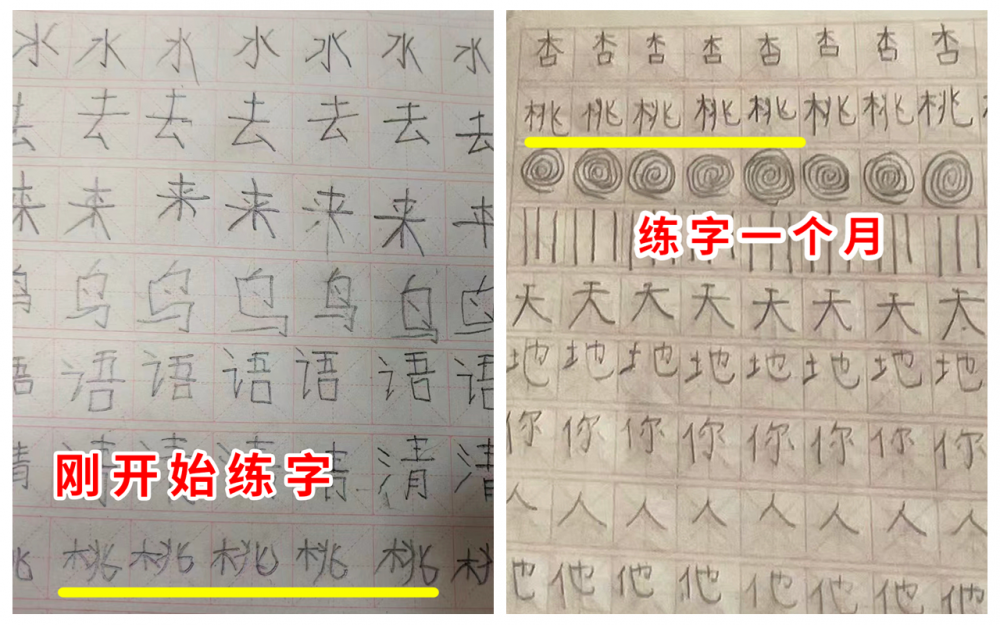 水水水水水水水
去去去去去去去
来来来来来来来
鸟鸟鸟鸟鸟鸟鸟
语语语语语语语
清清
刚开始练字
桃桃桃桃桃桃桃
杏杏杏杏杏杏杏杏
桃桃桃桃桃桃桃桃
练字一个月
天天天天天天天天
地地地地地地地地
你你你你你你你你
人人人人人人人人
他他他他他他他他